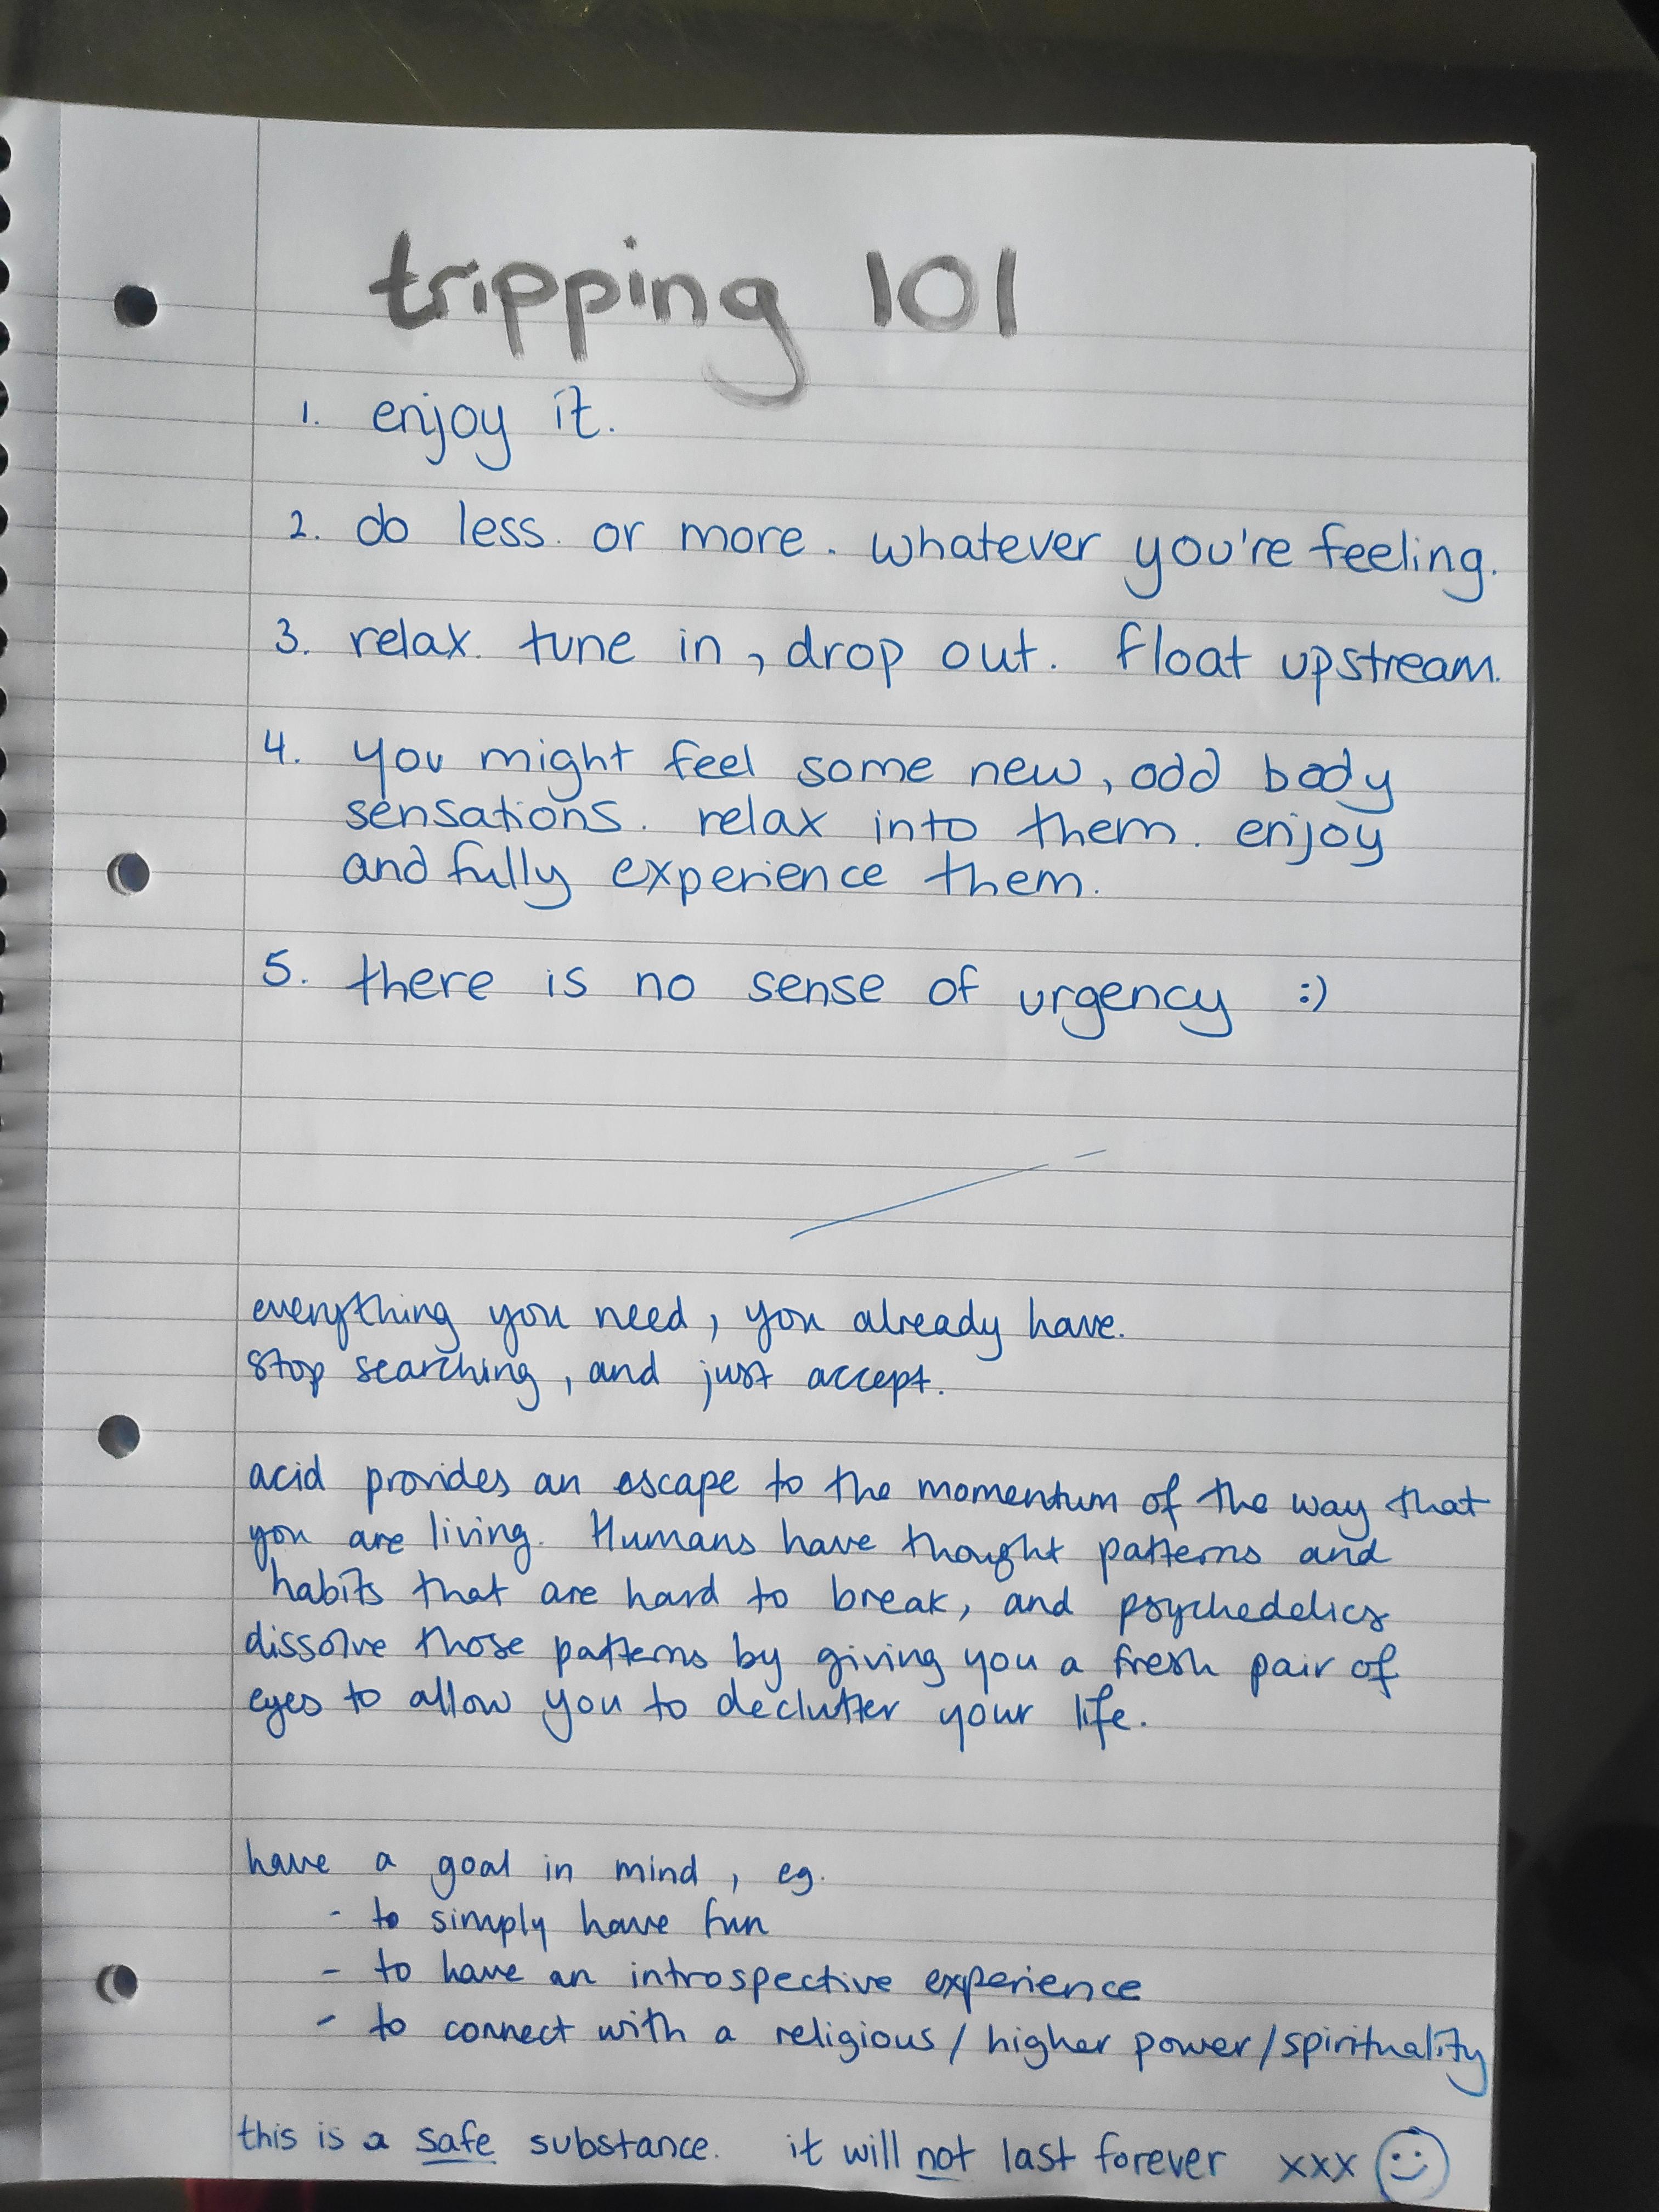 tripping 101
1. enjoy it.
2. do less. or more. whatever you're feeling.
3. relax. tune in, drop out. float upstream.
4. you might feel some new, odd body
sensations. relax into them. enjoy
and fully experience them.
5. there is no sense of urgency :)
everything you need, you already have.
stop searching, and just accept.
acid provides an escape to the momentum of the way that
you are living. Humans have thought patterns and
habits that are hard to break, and psychedelics
dissolve those patterns by giving you a fresh pair of
eyes to allow you to declutter your life.
have a goal in mind, eg.
- to simply have fun
- to have an introspective experience
- to connect with a religious/higher power/spirituality
this is a safe substance. it will not last forever xxx